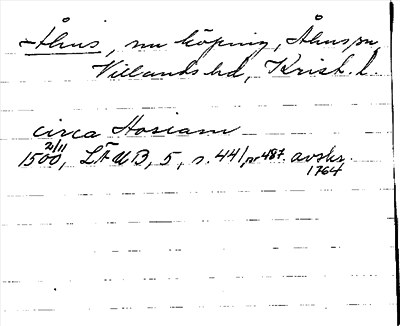 Åhus, nu köping, Åhus sn,
Villands hd, Krist. l.
circa Hosiam
21/11
1500, LÄUB, 5, s. 441, nr 487. avskr.
1764